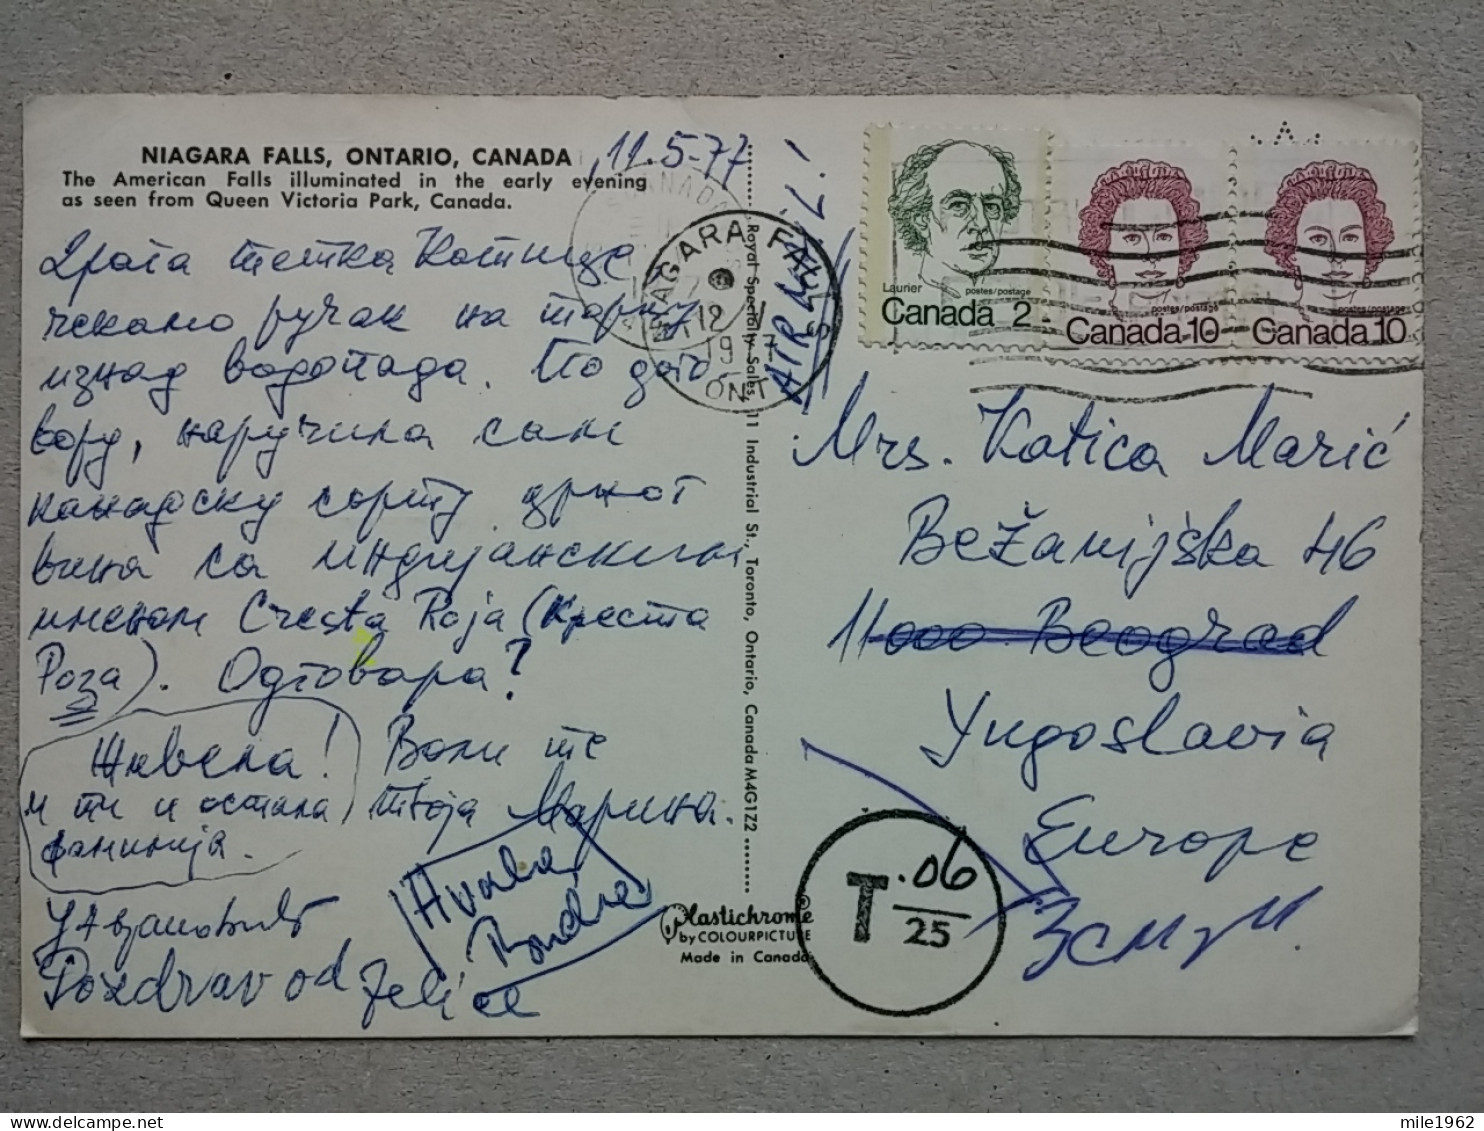 NIAGARA FALLS, ONTARIO, CANADA
The American Falls illuminated in the early evening
as seen from Queen Victoria Park, Canada.
11.5-77
Драга тетка Катице
чекамо ручак на торњу
изнад водопада. По дого
вору, наручила сам
канадску сорту црног
вина са индијанским
именом Cresta Roja (Креста
Роза). Одговара?
Живела!
и ти и остала
фамилија.
Воли те
твоја Марина.
Hvala
Pozdrav od Jelice
Royal Specialty Sales, 11 Industrial St., Toronto, Ontario, Canada M4G1Z2
Plastichrome®
by COLOURPICTURE
Made in Canada
NIAGARA FALLS
12 V
1977
ONT
AIRMAIL!
Laurier
postes/postage
Canada 2
postes/postage
Canada 10
postes/postage
Canada 10
Mrs. Katica Marić
Bežanijska 46
11000 Beograd
Yugoslavia
Europe
Земун
T .06
25
mile1962